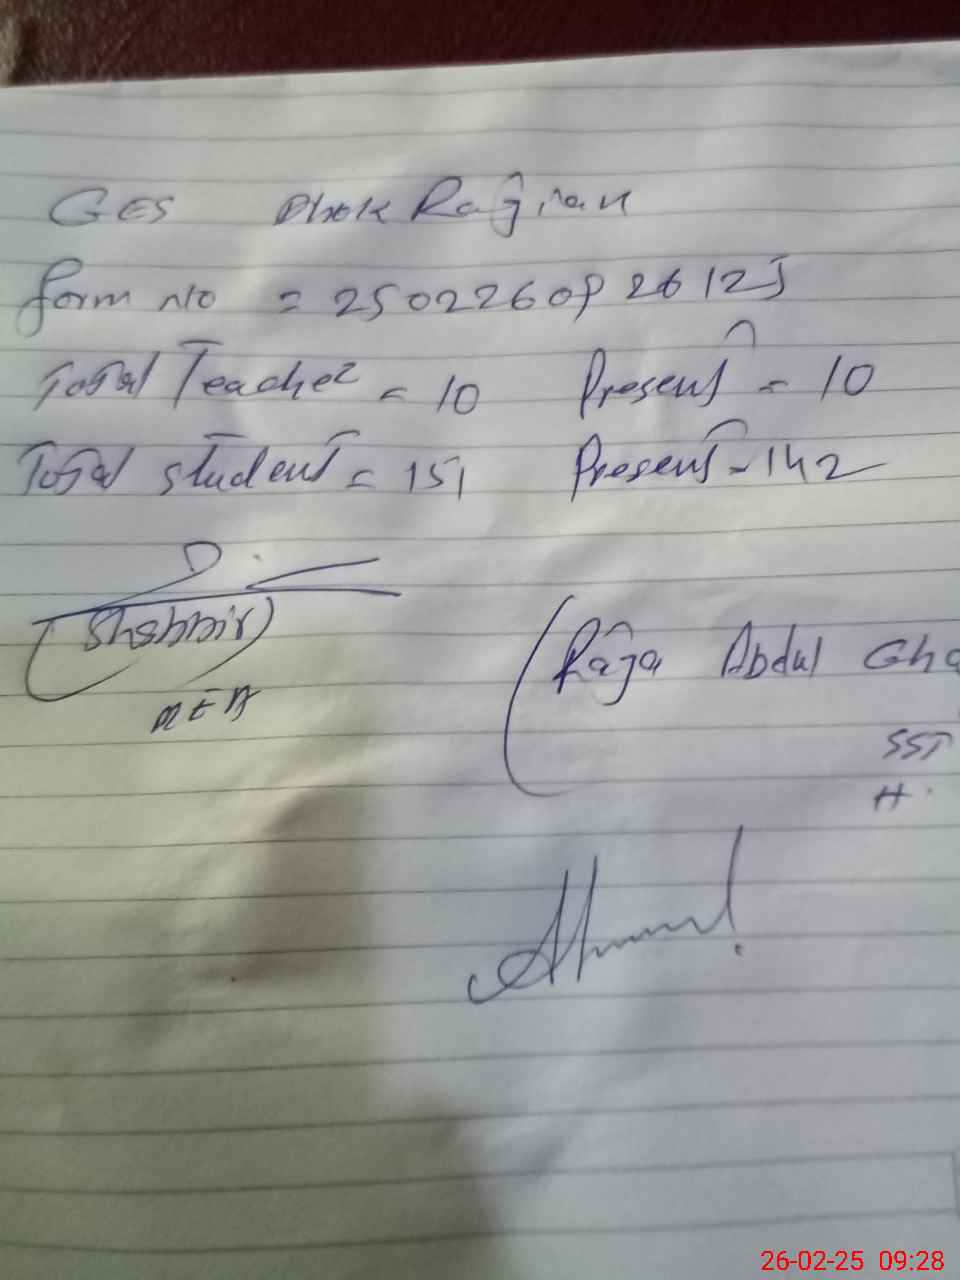 GES Dhok Rajian
form no = 250226
Total Teacher = 10 Present = 10
Total student = 151 Present = 142
(Shabbir)
(Raja Abdul Gha
SST
H.
26-02-25 09:28